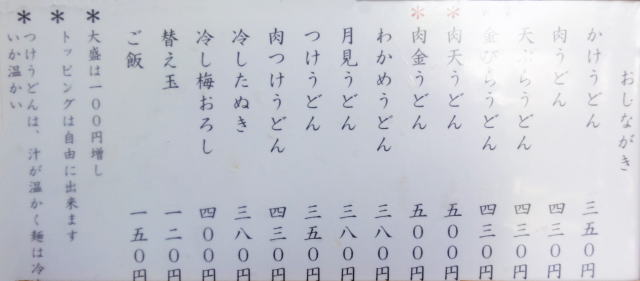 おしながき
かけうどん 三五〇円
肉うどん 四三〇円
天ぷらうどん 四三〇円
金ぴらうどん 四三〇円
＊肉天うどん 五〇〇円
＊肉金うどん 五〇〇円
わかめうどん 三八〇円
月見うどん 三八〇円
つけうどん 三五〇円
肉つけうどん 四三〇円
冷したぬき 三八〇円
冷し梅おろし 四〇〇円
替え玉 一二〇円
ご飯 一五〇円
＊大盛は一〇〇円増し
＊トッピングは自由に出来ます
＊つけうどんは、汁が温かく麺は冷
いか温かい